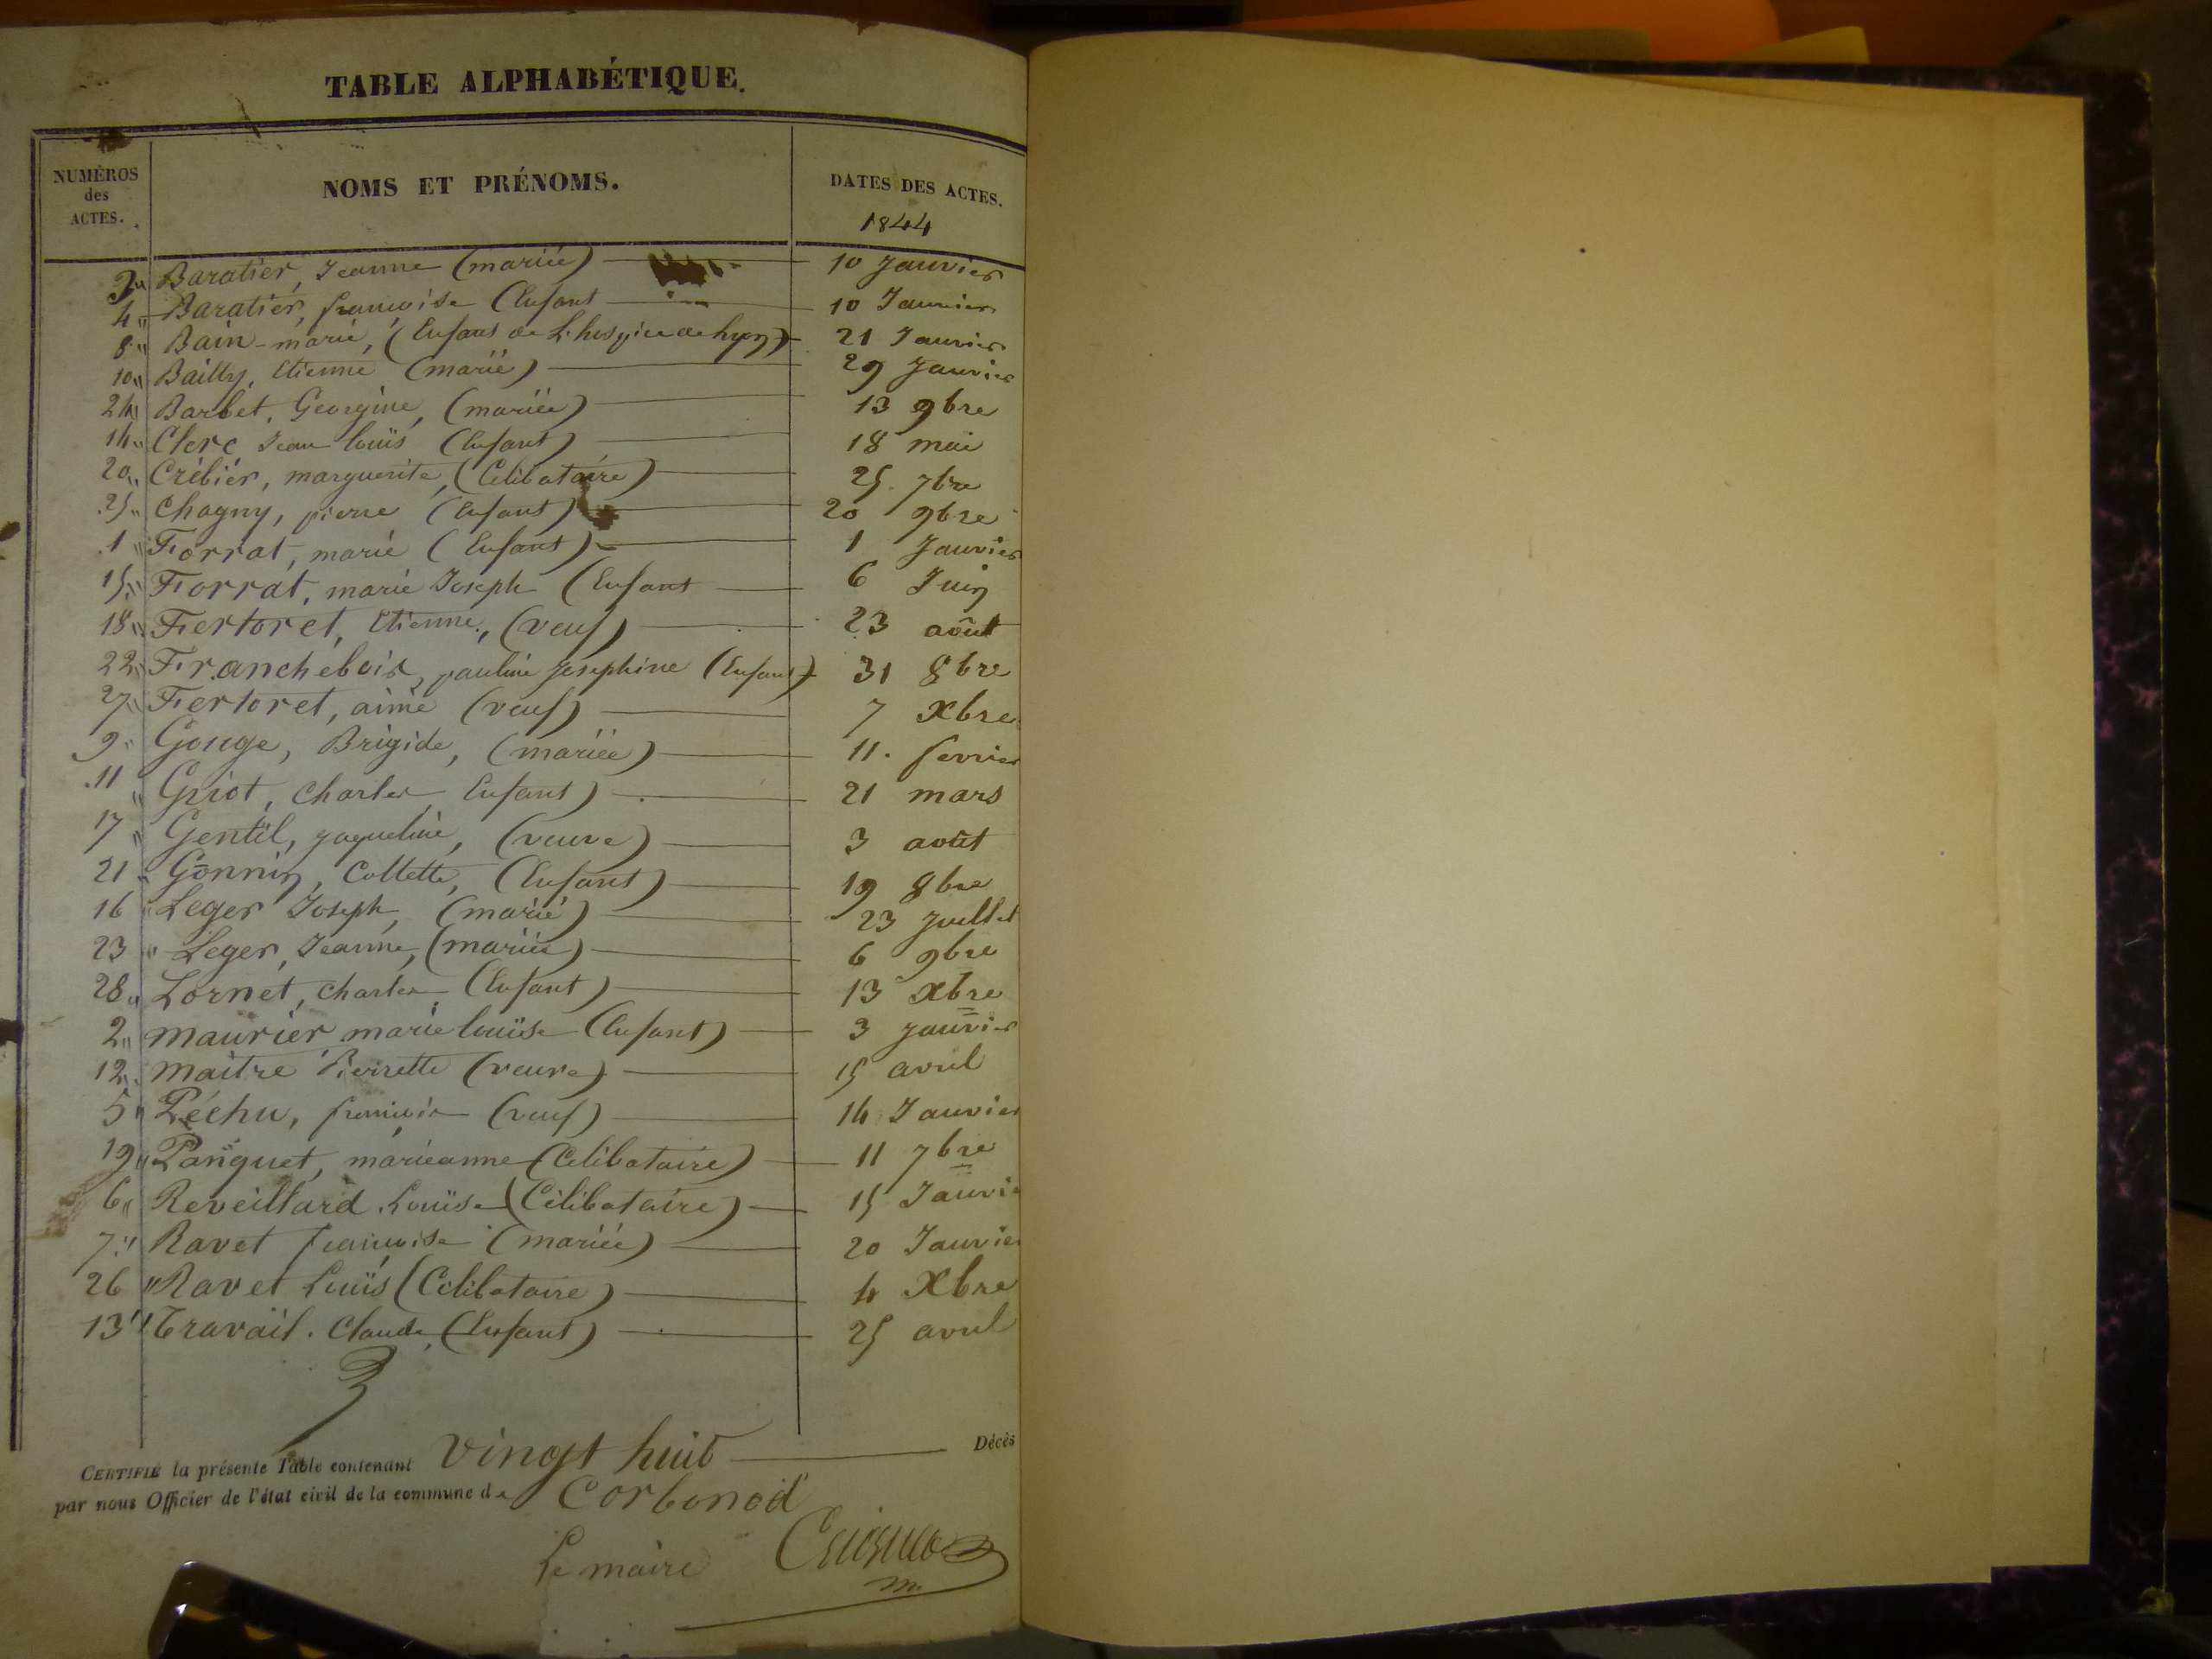 TABLE ALPHABÉTIQUE.
NUMÉROS des ACTES. NOMS ET PRÉNOMS. DATES DES ACTES.
1844
3 " Baratier, Jeanne (mariée) 10 Janvier
4 " Baratier, françoise (Enfant 10 Janvier
8 " Bain marie, (Enfant de L'hospice de Lyon) 21 Janvier
10 " Bailly, Etienne (marié) 29 Janvier
24 " Barbet, Georgine, (mariée) 13 9bre
14 " Clerc Jean louis (Enfant) 18 mai
20 " Crébier, marguerite, (Célibataire) 25 7bre
25 " Chagny, pierre (Enfant) 20 9bre
1 " Forrat, marie (Enfant) 1 Janvier
15 " Forrat, marie Joseph (Enfant 6 Juin
18 " Fertoret, Etienne, (veuf) 23 août
22 " Franchebois, pauline Josephine (Enfant) 31 8bre
27 " Fertoret, aimé (veuf) 7 Xbre
9 " Gouge, Brigide, (mariée) 11 fevrier
11 " Griot, Charles Enfant) 21 mars
17 " Gentil, jaqueline, (veuve) 3 août
21 " Gonnin, Collette, (Enfant) 19 8bre
16 " Leger Joseph, (marié) 23 Juillet
23 " Leger, Jeanne, (mariée) 6 9bre
28 " Lornet, Charles (Enfant) 13 Xbre
2 " maurier marie louïse (Enfant) 3 Janvier
12 " maitre Pierrette (veuve) 15 avril
5 " Péchu, françois (veuf) 14 Janvier
19 " Panguet, marieanne (Célibataire) 11 7bre
6 " Reveillard Louïse (Célibataire) 15 Janvier
7 " Ravet françoise (mariée) 20 Janvier
26 " Ravet Louïs (Célibataire) 4 Xbre
13 " Travail. Claude, (Enfant) 25 avril
CERTIFIÉ la présente Table contenant vingt huit Décès
par nous Officier de l'état civil de la commune de Corbonod
Le maire